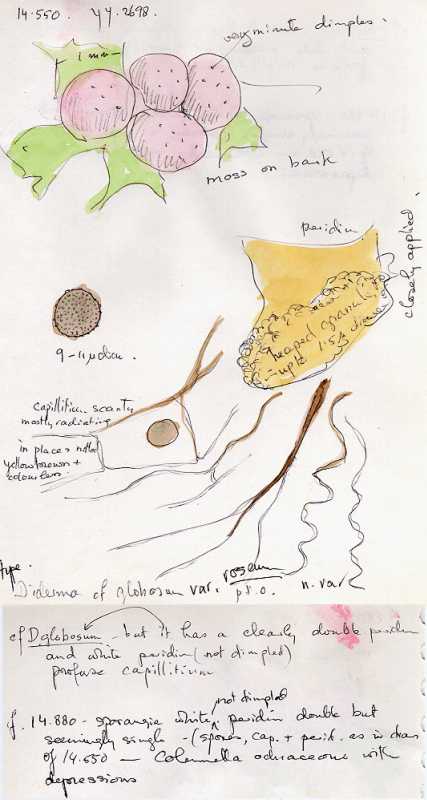 14.550. yy.2698.
very minute dimples.
1 mm
moss on bark
peridium
closely applied.
heaped granules
- up to 1.5µ diam
9-11µ diam.
capillitium scanty
mostly radiating
in places netted
yellow brown +
colourless
type.
Diderma cf globosum var. roseum n. var
p.t.o.
cf D globosum - but it has a clearly double peridium
and white peridium (not dimpled)
profuse capillitium
not dimpled
cf. 14.880 - sporangia white, peridium double but
seemingly single - (spores, cap. + perid. as in
of 14.550 — Columella ochraceous with
depressions